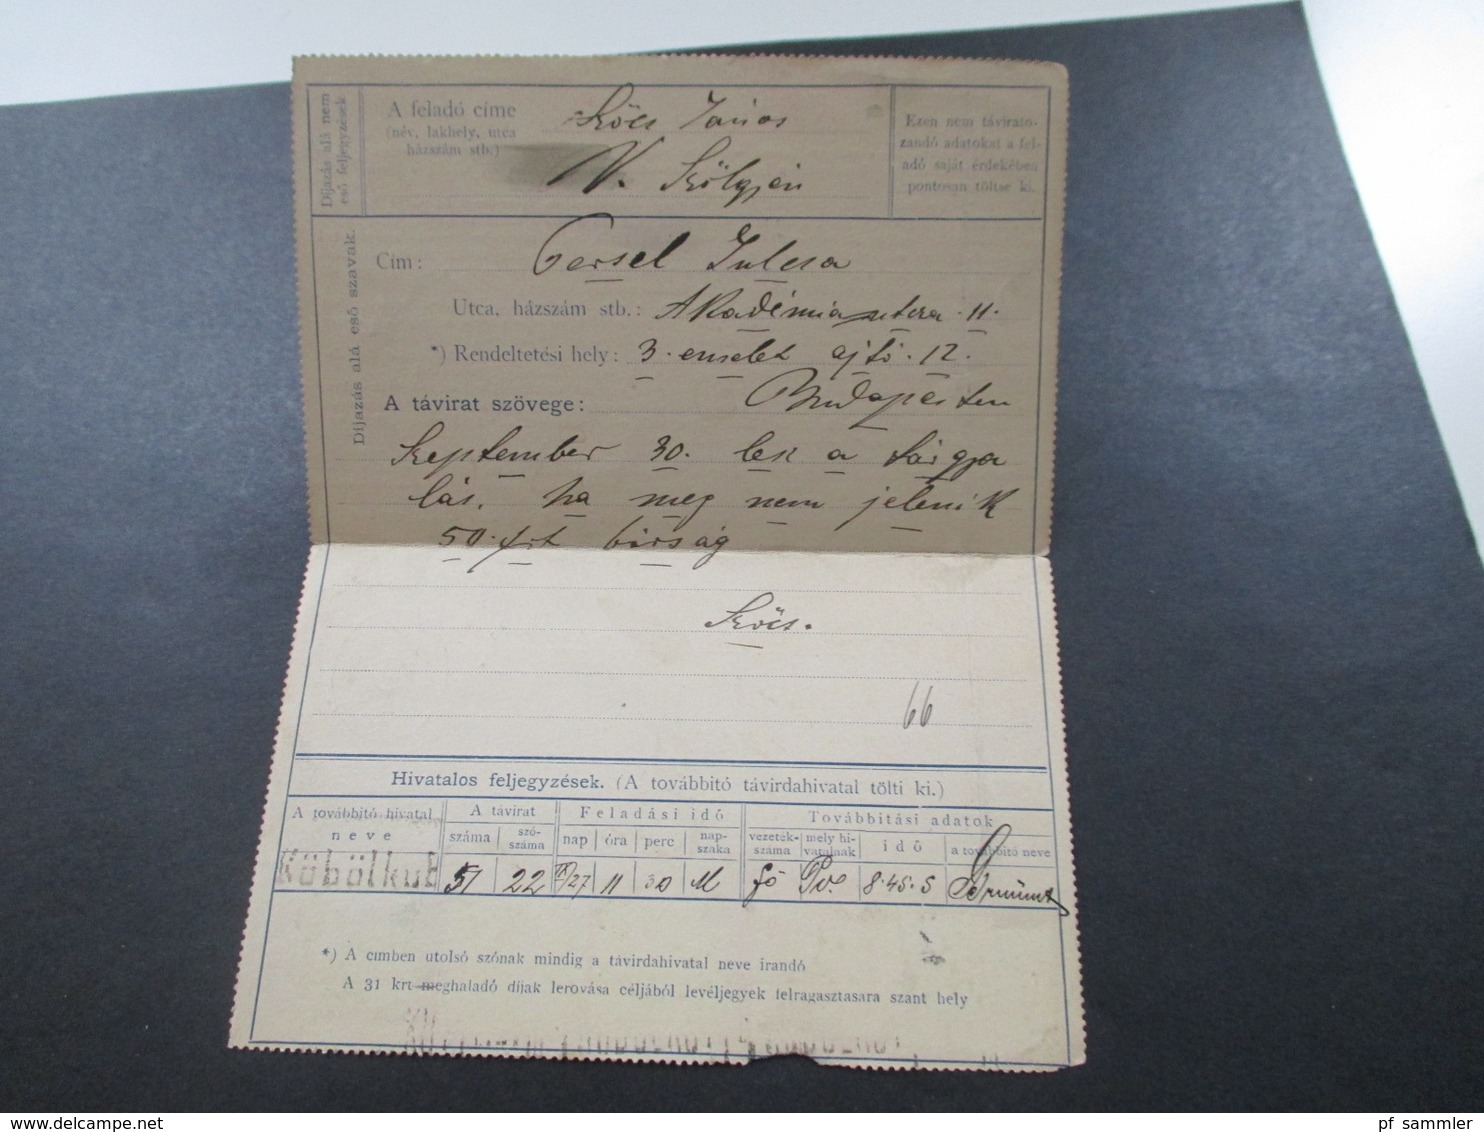 Díjazás alá nem
eső feljegyzések
A feladó címe
(név, lakhely, utca
házszám stb.)
Szőcs János
V. Szölgyén
Ezen nem távirato-
zandó adatokat a fel-
adó saját érdekében
pontosan töltse ki.
Díjazás alá eső szavak.
Cím: Gersel Julcsa
Utca, házszám stb.: Akadémia utcza 11.
*) Rendeltetési hely: 3. emelet ajtó. 12.
A távirat szövege: Budapesten
Szeptember 30. lesz a tárgya
lás. ha meg nem jelenik
50. frt bírság
Szőcs.
66
Hivatalos feljegyzések. (A továbbító távirdahivatal tölti ki.)
A továbbító hivatal
neve
A távirat
Feladási idő
Továbbítási adatok
száma
szó-
száma
nap óra perc
nap-
szaka
vezeték-
száma
mely hi-
vatalnak
idő
a továbbító neve
Köbölkut 51 22 IX/27 11 30 M fő Pv. 8.45.S
*) A címben utolsó szónak mindig a távirdahivatal neve irandó
A 31 krt meghaladó díjak lerovása céljából levéljegyek felragasztására szánt hely
www.delcampe.net
pf_sammler